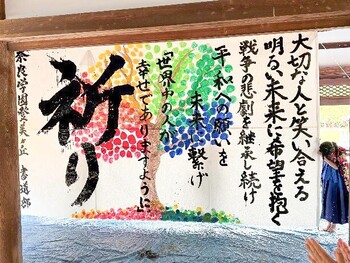 大切な人と笑い合える
明るい未来に希望を抱く
戦争の悲劇を継承し続け
平和への願いを
未来に繋げ
「世界中の人が
幸せでありますように」
祈り
奈良学園登美ヶ丘 書道部